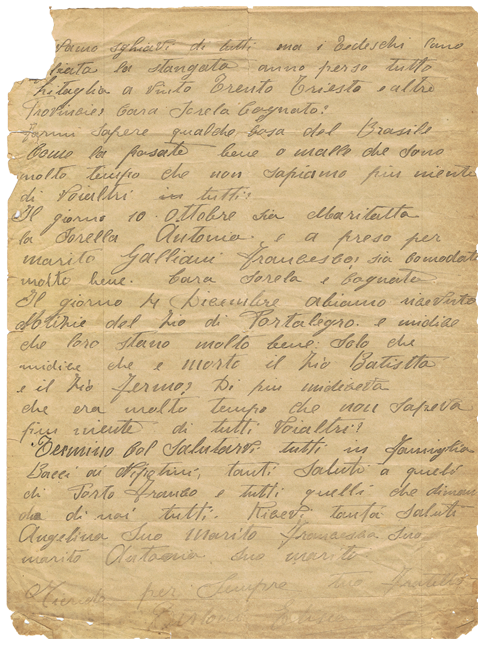 sghiavi di tutti ma i Tedeschi lano
la stangata anno perso tutto
a vinto Trento Triesto e altre
Provincie: Cara Sorela Cognato:
Farmi Sapere qualche cosa del Brasile
Come la pasate bene o malle che sono
molto tempo che non sapiamo piu niente
di Voialtri in tutti:
Il giorno 10 Ottobre sia Maritatta
la Sorella Antonia e a preso per
marito Galliani Francesco: sia comodata
molto bene. Cara Sorela e Cognato
Il giorno 4 Dicembre abiamo ricevuto
Notizie del Zio di Portalegro e midice
che loro stano molto bene: Solo che
midice che e morto il Zio Batistta
e il Zio Fermo? Di piu midiceva
che era molto tempo che non sapeva
piu niente di tutti Voialtri?
Termino Col Salutarvi tutti in Famiglia
Bacci ai Nipotini, tanti Saluto a queli
di Porto Franco e tutti quelli che diman
da di noi tutti. Ricevi tanti Saluti
Angelina Suo Marito Francesca Suo
marito Antonia suo marito
per Sempre tuo Fratello